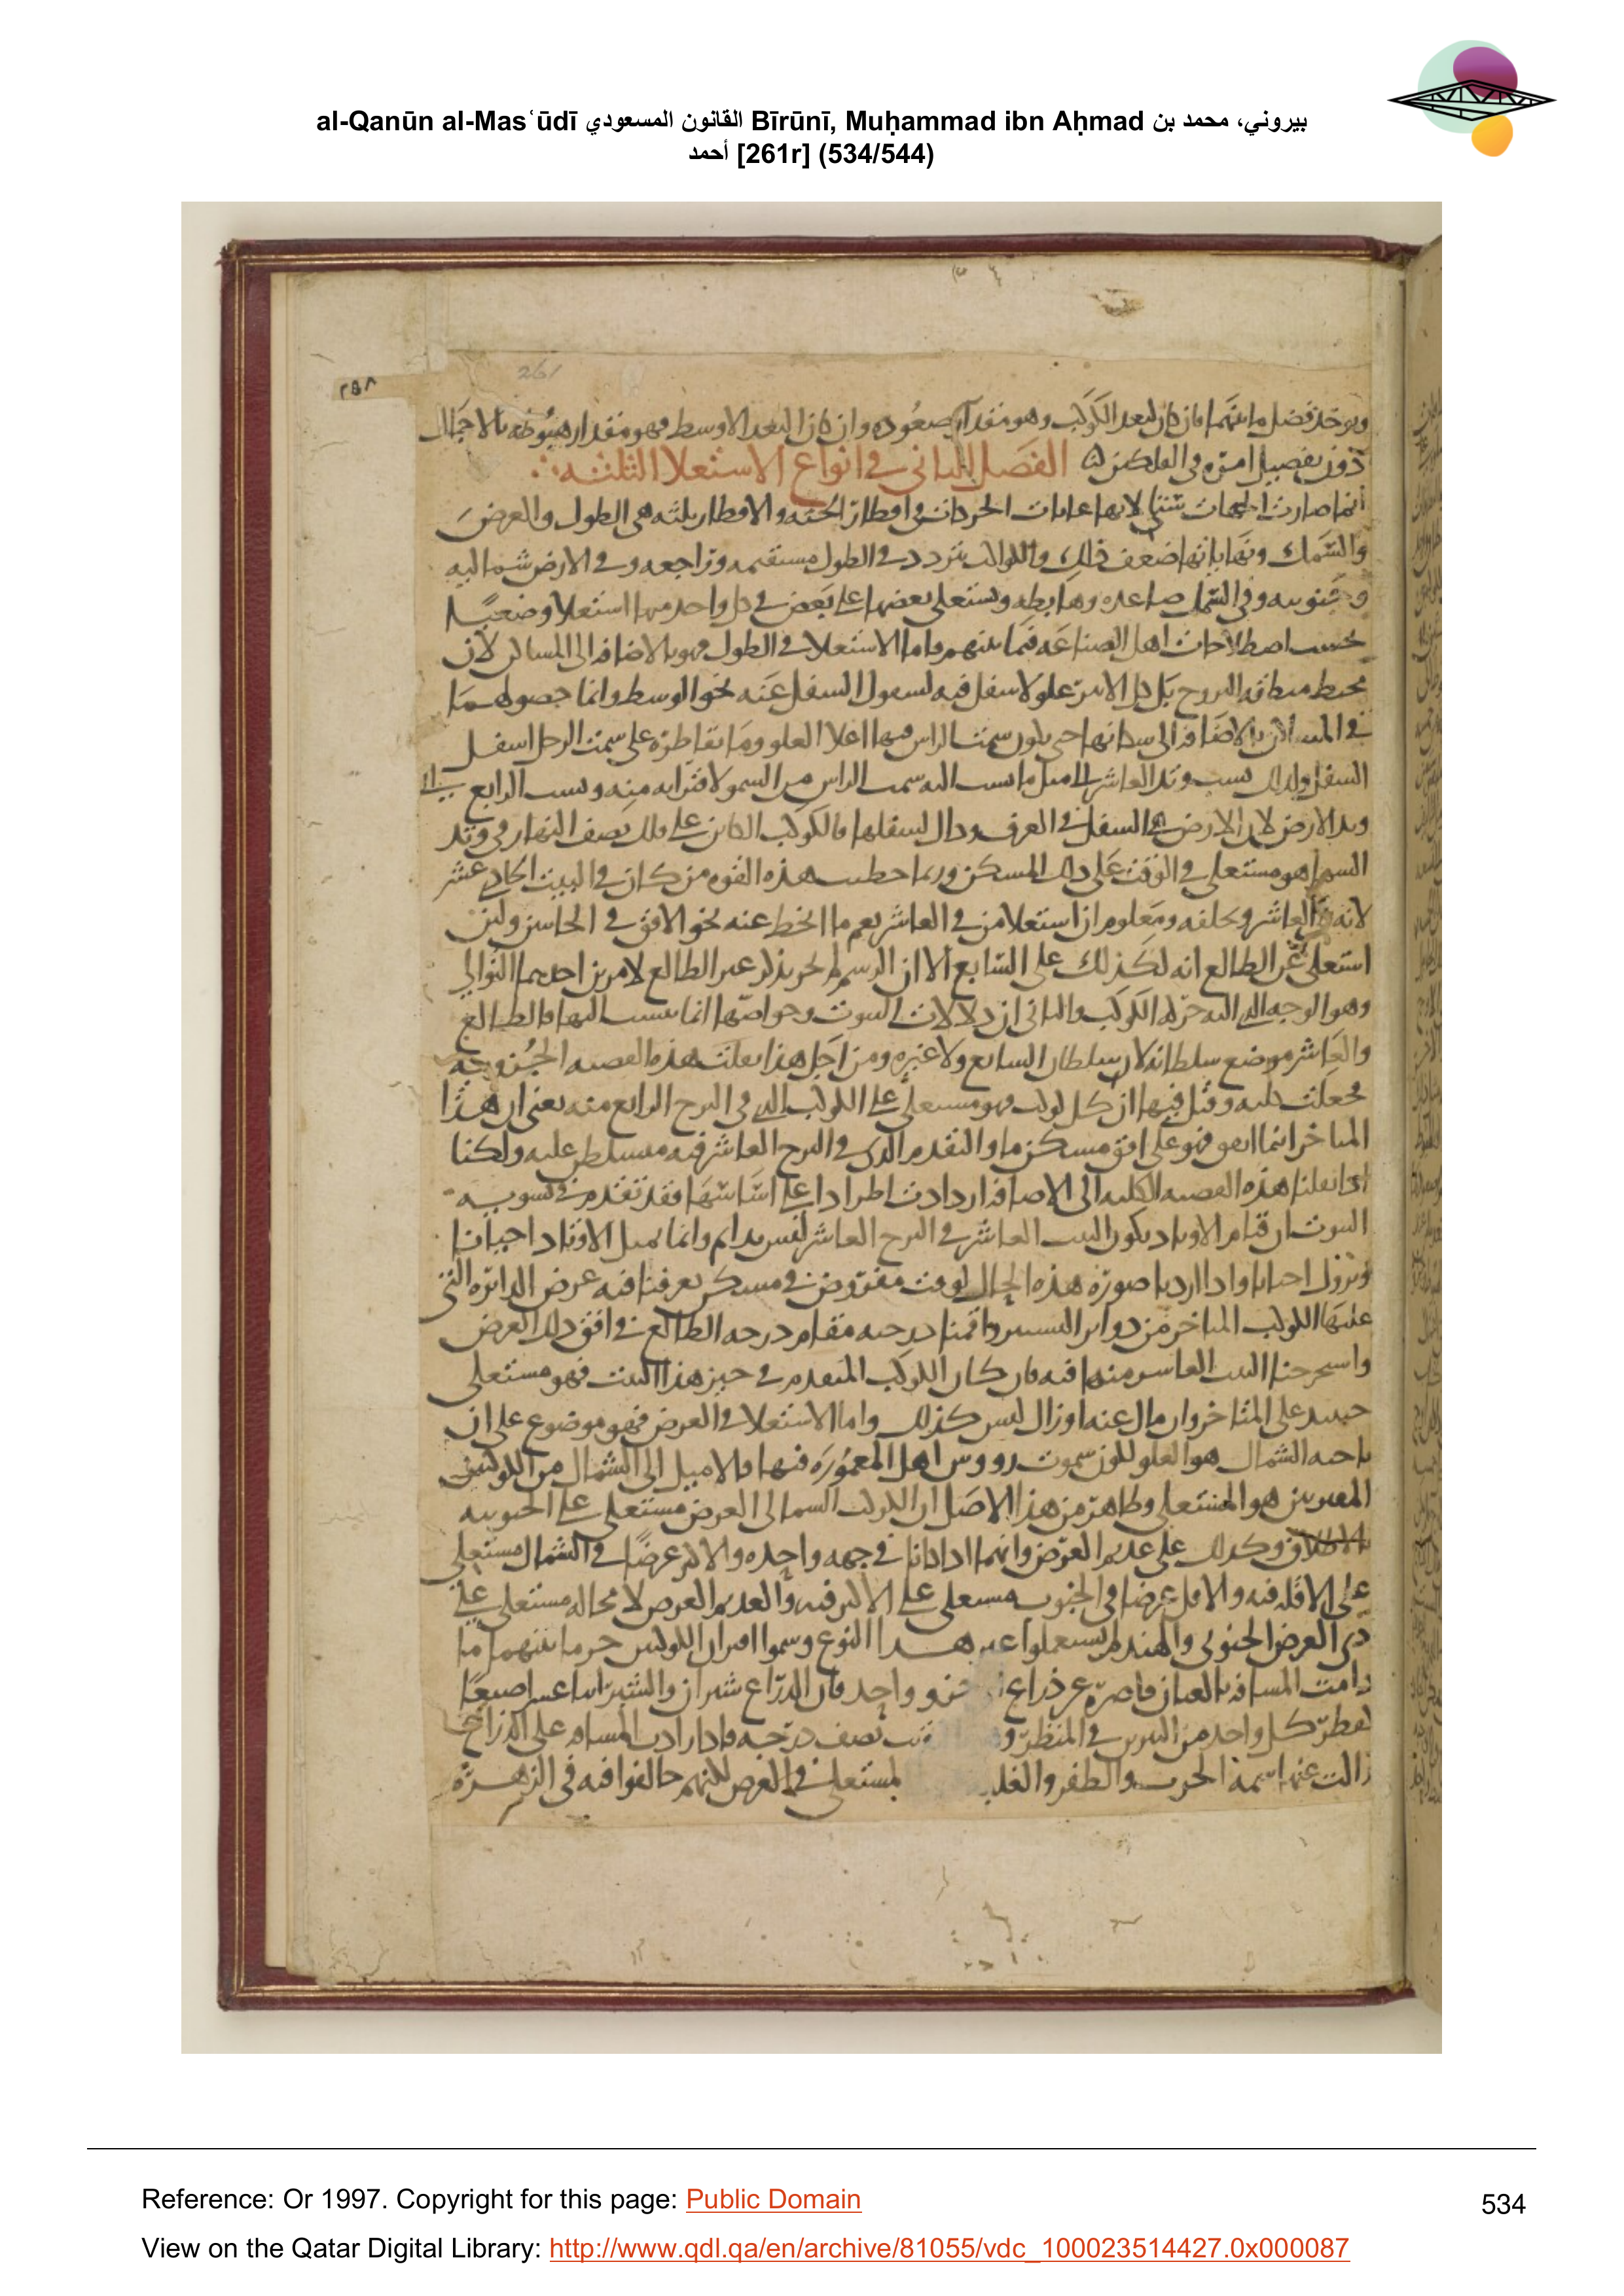 al-Qanūn al-Masʿūdī القانون المسعودي Bīrūnī, Muḥammad ibn Aḥmad بيروني، محمد بن
أحمد [261r] (534/544)
261
٢٥٨
ويوخذ فضل ما بينهما فان كان لبعد الكوكب وهو مقدار صعوده وان كان البعد الاوسط فهو مقدار هبوطه بالاجمال
دون تفصيل امره في الفلكين الفصل الثاني في انواع الاستعلا الثلثه
انما صارت الجهات ستا لانها غايات الحركات في اقطار الجثه والاقطار ثلثه هي الطول والعرض
والسمك ونهاياتها ضعف ذلك والكواكب تتردد في الطول مستقيمه وراجعه وفي الارض شماليه
وجنوبيه وفي السمك صاعده وهابطه ويستعلي بعضها على بعض في كل واحد منها استعلا وضعيا
بحسب اصطلاحات اهل الصناعه فيما بينهم واما الاستعلا في الطول فهو بالاضافه الى المساكن لان
محيط منطقه البروج بل كل الاثير علو لا سفل فيه لسفول السفل عنه نحو الوسط وانما
في المساكن بالاضافه الى سكانها حتى يكون سمت الراس فيها اعلا العلو وما يقاطره على سمت الرجل اسفل
السفل ولذلك نسب وتد العاشر الى مثل ما نسب اليه سمت الراس من السمو لاقترابه منه ونسب الرابع الى
وتد الارض لان الارض هي السفل في العرف وكل لسفلها فالكوكب الكائن على فلك نصف النهار في وتد
السما هو مستعلي في الوقت على ذلك المسكن وربما حطت هذه القوه من كان في البيت الحادي عشر
لانه العاشر وخلفه ومعلوم ان استعلا من في العاشر يعم ما انحط عنه نحو الافق في الجانبين ولئن
استعلى عن الطالع انه لكذلك على السابع الا ان الرسم لم يجر بذكر غير الطالع لامرين احدهما التوالي
وهو الوجه الذي اليه حركه الكوكب والثاني ان دلالات البيوت وخواصها انما ينسب اليها فالطالع
والعاشر موضع سلطانه لان سلطان السابع ولا غيره ومن اجل هذا نقلت هذه القصيه الجزويه
فجعلت كليه وقيل فيها ان كل كوكب فهو مستعلي على الكوكب الذي في البرج الرابع منه يعني ان هذا
المتاخر انما هو فهو على افق مسكن ما والمتقدم الذي في البرج العاشر فيه مسلط عليه ولكنا
اذا نقلنا هذه القصيه الكليه الى الاضافه ازدادت اطرادا على اساسها فقد تقدم في تسويه
البيوت ان قيام الاوتاد بكون البيت العاشر في البرج العاشر ليس بدايم وانما يميل الاوتاد احيانا
وتزول احيانا واذا اردنا صوره هذه الحال لوقت مفروض في مسكن عرفنا فيه عرض الدائره التي
عليها الكوكب المتاخر من دوائر التسيير واقمنا درجته مقام درجه الطالع في افق ذلك العرض
واستخرجنا البيت العاشر منها فيه فان كان الكوكب المتقدم في حيز هذا البيت فهو مستعلي
حينئذ على المتاخر وان مال عنه او زال ليس كذلك واما الاستعلا في العرض فهو موضوع على ان
ناحيه الشمال هو العلو لكون سموت رووس اهل المعموره فيها فالاميل الى الشمال من الكوكبين
المقترنين هو المستعلي وظاهر من هذا الاصل ان الكوكب الشمالي العرض مستعلي على الجنوبيه
بالاطلاق وكذلك على عديم العرض وانهما اذا كانا في جهه واحده والاكثر عرضا في الشمال مستعلي
على الاقله فيه والاقل عرضا في الجنوب مستعلي على الاكثر فيه والعديم العرض لا محاله مستعلي على
ذي العرض الجنوبي والهند لم يستعملوا غير هذا النوع وسموا اقتران الكوكبين حربا بينهما ما
دامت المسافه بالعيان قاصره عن ذراع واحد فان الذراع شبران والشبر اثنا عشر اصبعا
لقطر كل واحد من النيرين في المنظر نصف درجه فاذا زادت المسافه على الذراع
زالت عنهما سمه الحرب والظفر والغلبه لمستعلي في العرض لكنهم خالفوا فيه في الزهره
Reference: Or 1997. Copyright for this page: Public Domain
534
View on the Qatar Digital Library: http://www.qdl.qa/en/archive/81055/vdc_100023514427.0x000087